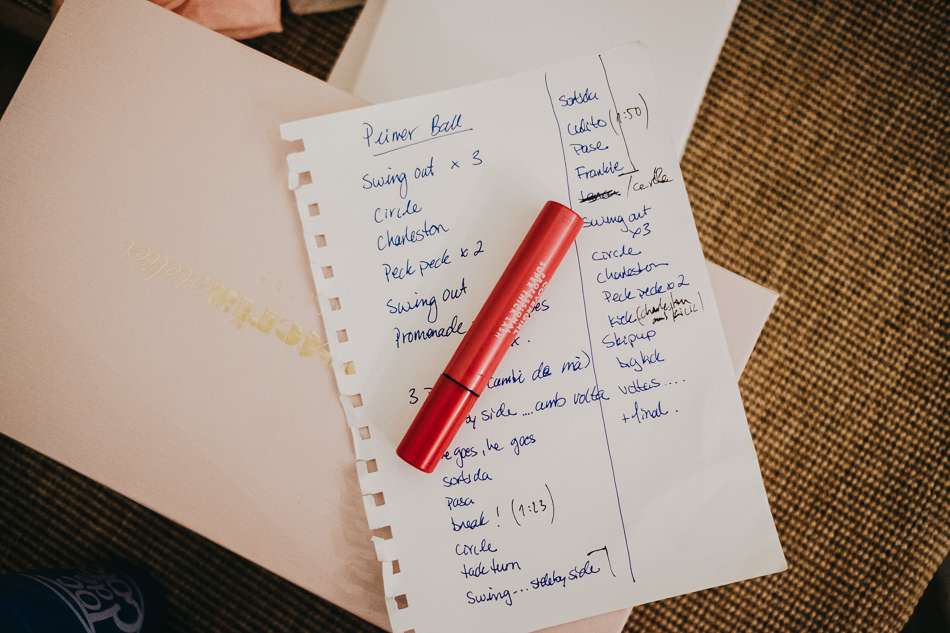 Primer Ball
Swing out x 3
Circle
Charleston
Peck peck x 2
Swing out
Promenade
x.
3
(cambi da mà)
by side .... amb volta
e goes, he goes
sortida
Pasa
break! (1:23)
circle
tuck turn
Swing... side by side
Sortida
(1:50)
Pase
Frankie
Swing out
x3
circle
charleston
Peck peck x 2
kick (charleston
kick)
Skip up
big kick
voltes ....
+ final.
COVERGIRL
SUPER THICK LASH